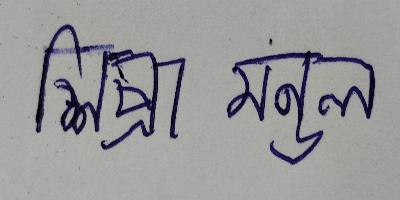 শিপ্রা মন্ডল